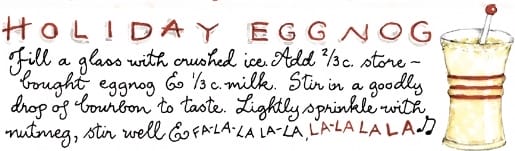 HOLIDAY EGGNOG
Fill a glass with crushed ice. Add 2/3 c. store-
bought eggnog & 1/3 c. milk. Stir in a goodly
drop of bourbon to taste. Lightly sprinkle with
nutmeg, stir well & FA-LA-LA LA-LA, LA-LA LA LA♫